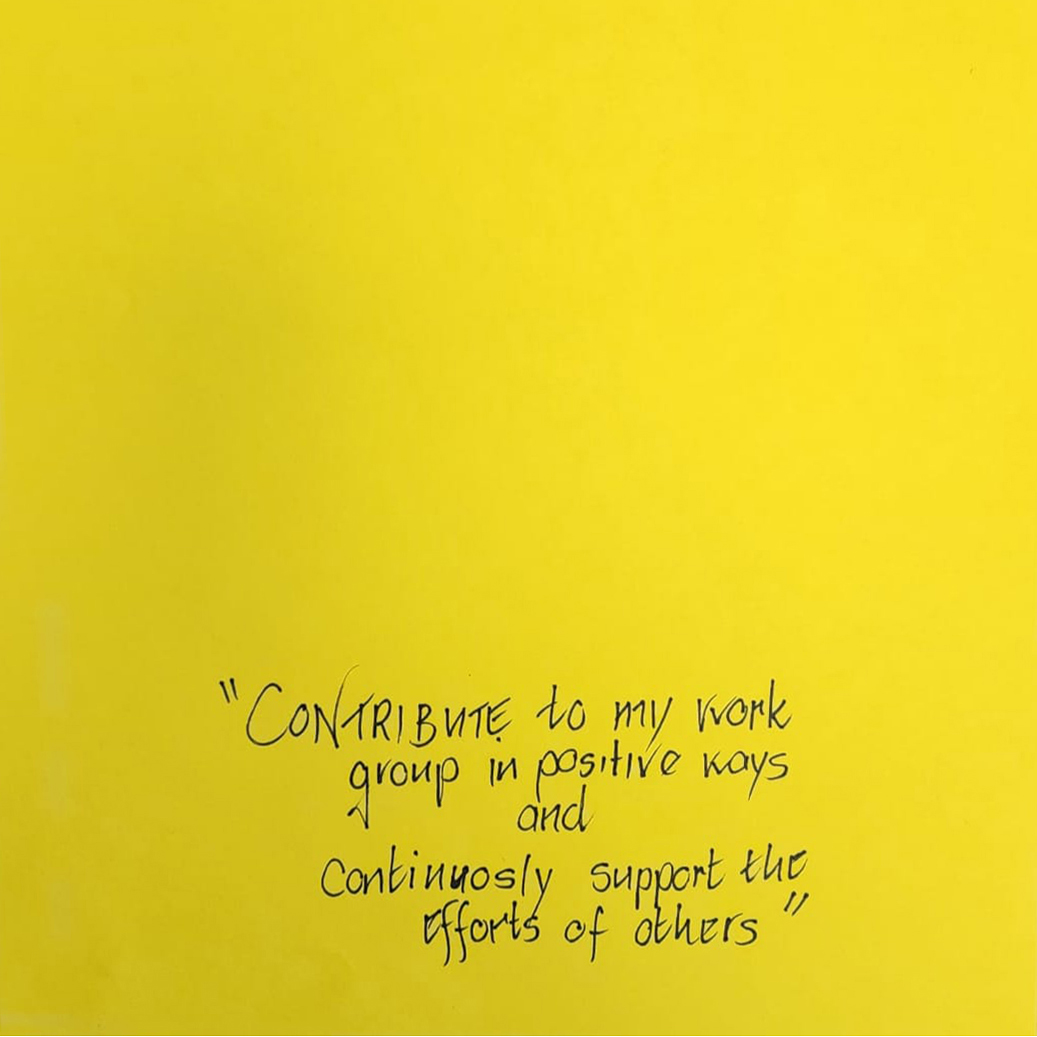 "CONTRIBUTE to my work
group in positive ways
and
Continuosly support the
Efforts of others"